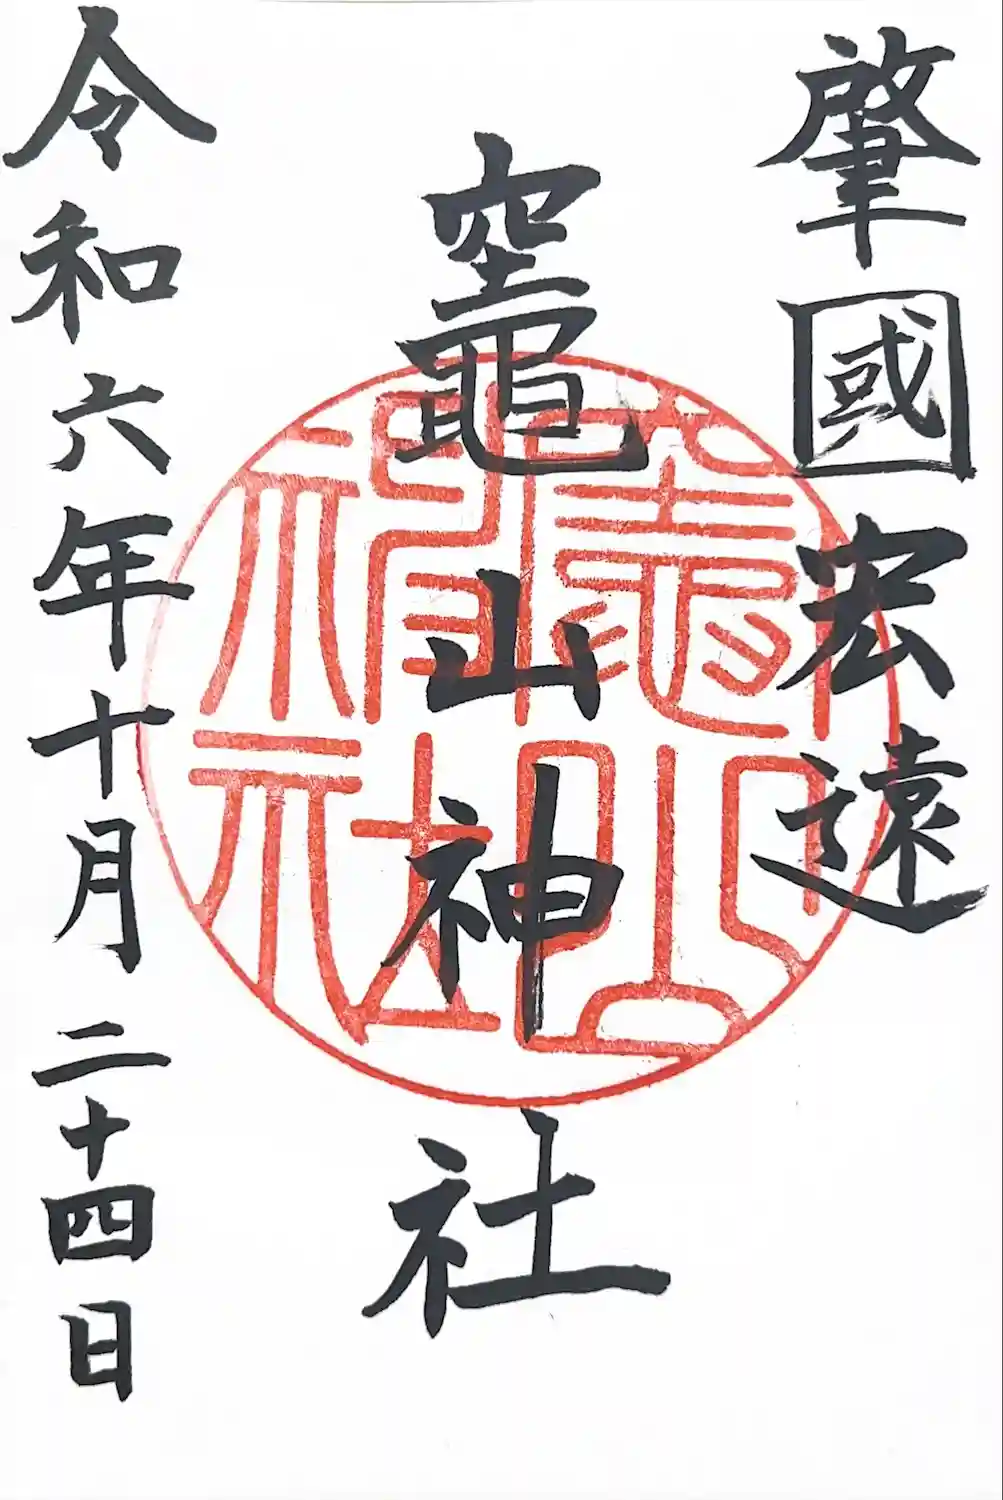 肇國宏遠
竈山神社
令和六年十月二十四日